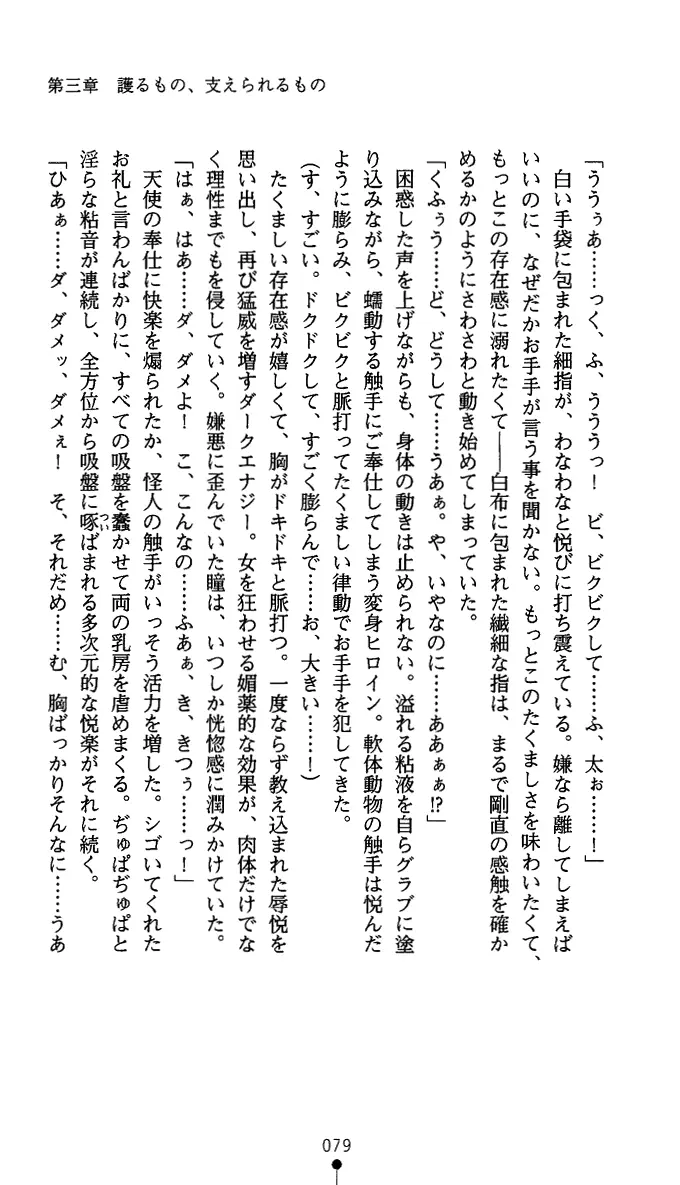 第三章　護るもの、支えられるもの
「ううぅあ……っく、ふ、うううっ！　ビ、ビクビクして……ふ、太ぉ……！」
　白い手袋に包まれた細指が、わなわなと悦びに打ち震えている。嫌なら離してしまえば
いいのに、なぜだかお手手が言う事を聞かない。もっとこのたくましさを味わいたくて、
もっとこの存在感に溺れたくて――白布に包まれた繊細な指は、まるで剛直の感触を確か
めるかのようにさわさわと動き始めてしまっていた。
「くふぅう……ど、どうして……うあぁ。や、いやなのに……ああぁぁ!?」
　困惑した声を上げながらも、身体の動きは止められない。溢れる粘液を自らグラブに塗
り込みながら、蠕動する触手にご奉仕してしまう変身ヒロイン。軟体動物の触手は悦んだ
ように膨らみ、ビクビクと脈打ってたくましい律動でお手手を犯してきた。
（す、すごい。ドクドクして、すごく膨らんで……お、大きい……！）
　たくましい存在感が嬉しくて、胸がドキドキと脈打つ。一度ならず教え込まれた辱悦を
思い出し、再び猛威を増すダークエナジー。女を狂わせる媚薬的な効果が、肉体だけでな
く理性までもを侵していく。嫌悪に歪んでいた瞳は、いつしか恍惚感に潤みかけていた。
「はぁ、はあ……ダ、ダメよ！　こ、こんなの……ふあぁ、き、きつぅ……っ！」
　天使の奉仕に快楽を煽られたか、怪人の触手がいっそう活力を増した。シゴいてくれた
お礼と言わんばかりに、すべての吸盤を蠢かせて両の乳房を虐めまくる。ぢゅぱぢゅぱと
淫らな粘音が連続し、全方位から吸盤に啄（つい）ばまれる多次元的な悦楽がそれに続く。
「ひあぁ……ダ、ダメッ、ダメぇ！　そ、それだめ……む、胸ばっかりそんなに……うあ
079